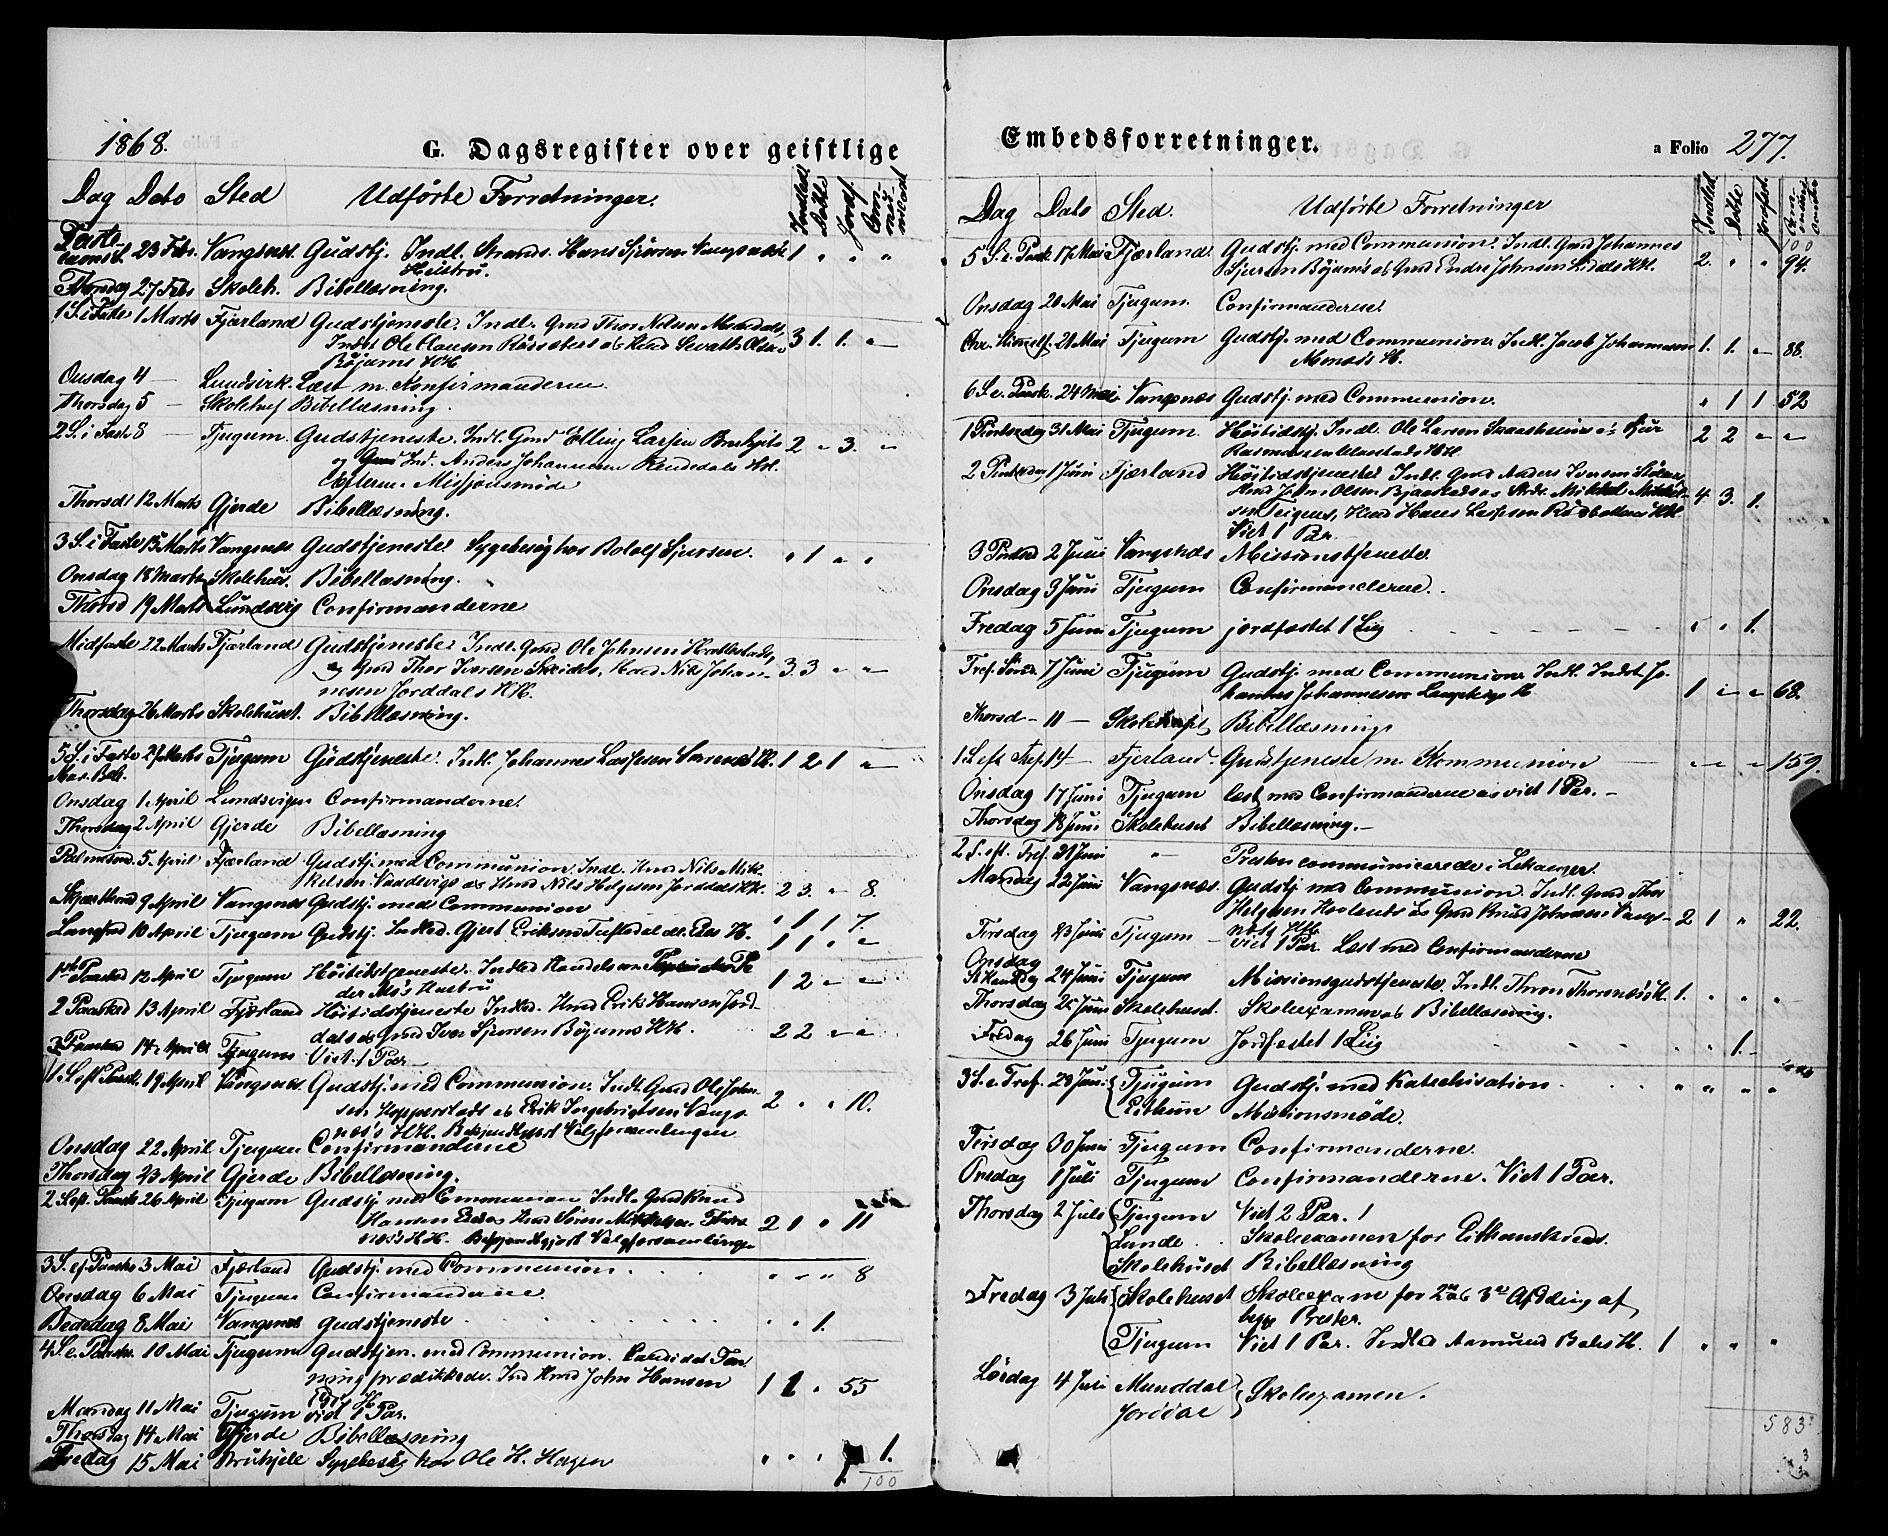 1868.
G. Dagsregister over geistlige
Dag Dato Sted Udførte Forretninger. Indled. Døbte Jordf. Communicant
Fastelavns S. 23 Febr. Vangsnæs Gudstj. Indl. Strands. Hans Sjursen Vangsnæs
Hustru. 1 " " "
Thorsdag 27 Febr Skoleh. Bibellæsning.
1 S. i Faste 1 Marts Fjærland Gudstjeneste. Indl. Gmd Thor Nilsen
Indst Ole Clausen og Hmd Olsen
Bøjums HH. 3 1. 1. "
Onsdag 4 — Lundsvik. Læst m. Konfirmanderne.
Thorsdag 5 — Skolehus Bibellæsning.
2 S. i Faste 8 — Tjugum. Gudstjeneste. Indl. Gmd Elling Larsen
og Ind. Anders Johannesen HH. 2 " 3. "
Missionsmøde
Thorsd 12 Marts Gjerde Bibellæsning.
3 S. i Faste 15 Marts Vangsnæs Gudstjeneste Sygebesøg hos Sjursen. " 1 " "
Onsdag 18 Marts Skolehus. Bibellæsning.
Thorsd 19 Marts Lundsvig Confirmanderne
Midfaste 22 Marts Fjærland Gudstjeneste. Indl. Gmd Ole Johnsen
og Gmd Thor Iversen Hmd Nils Johannesen
Jorddals HH. 3 3 " "
Thorsdag 26 Marts Skolehuset. Bibellæsning.
5 S. i Faste Marts Tjugum Gudstjeneste. Indl. Johannes Lassesen H. 1 2 1 "
Mar. Bd.
Onsdag 1 April Lundsvigen Confirmanderne.
Thorsdag 2 April Gjerde Bibellæsning
Palmesønd. 5 April Fjærland Gudstj. med Communion. Indl. Hmd Nils Mikkelsen
og Hmd Nils Helgesen Jorddals HH. 2 3. " 8.
Skjærthorsd 9 April Vangsnæs Gudstj. med Communion " 1 1 7.
Langfred 10 April Tjugum Gudstj. Indled. Gjert Eriksen H. 1 1 " "
1ste Paaskd 12 April Tjugum Høitidstjeneste. Indled Handelsm.
Hustru 1 2 " "
2 Paaskd 13 April Fjærland Høitidstjeneste Indled. Hmd Erik Hansen Jorddals
og Gmd Iver Sjursen Bøjums HH. 2 2 " "
3 Paaskd 14 April Tjugum Viet 1 Par —
1 S. eft Paask. 19 April Vangsnæs. Gudstj. med Communion. Indl. Gmd Ole Johnsen
Hopperstads og Erik Ingebrigtsen Vangsnæs's
HH. Bekjendtgjort Valgforsamlingen 2 " " 10.
Onsdag 22 April Tjugum Confirmanderne
Thorsdag 23 April Gjerde Bibellæsning.
2 S. eft. Paaske 26 April Tjugum Gudstj med Communion Indl. Gmd Knud
Hansen Hmd Søren Mikkelsen
HH. Bekjendtgjort Valgforsamlingen 2 1 " 11
3 S. ef. Paaske 3 Mai Fjærland Gudstj. med Communion. " " " 8
Onsdag 6 Mai Tjugum Confirmanderne.
Bededag 8 Mai Vangsnæs Gudstjeneste " " 1.
4 S. e. Paaske 10 Mai Tjugum Gudstjen. med Communion. Candidat
prædikede. Ind Hmd John Hansen
H. 1 1 " 55
Mandag 11 Mai Tjugum viet 1 Par.
Thorsdag 14 Mai Gjerde Bibellæsning
Fredag 15 Mai Sygebesøg hos Ole H. Hagen " " " 1.
100
Embedsforretninger.
a Folio 277.
Dag Dato Sted. Udførte Forretninger Indled Døbte Jordfst. Communicanter
100
5 S. e. Paask 17 Mai Fjærland. Gudstj. med Communion. Indl. Gmd Johannes
Sjursen Bøjums og Gmd Endre Johnsen HH. 2. " " 94.
Onsdag 20 Mai Tjugum. Confirmanderne.
Chr. Himmelf. 21 Mai Tjugum Gudstj. med Communion. Indl. Jacob Johannesen
H. 1. 1. " 88.
6 S. e. Paask. 24 Mai Vangsnæs Gudstj. med Communion. " 1 1 52
1 Pintsedag 31 Mai Tjugum. Høitidstj. Indl. Ole Larsen
Rasmussen HH. 2 2 " "
2 Pintsedag 1 Juni Fjærland Høitidstjeneste. Indl. Gmd Anders Iversen
Hmd John Olsen og Strdr. Mikkel
Hmd Hans Lassesen HH.
Viet 1 Par. 4. 3. 1.
3 Pintsed 2 Juni Vangsnæs Missionstjeneste.
Onsdag 3 Juni Tjugum Confirmanderne.
Fredag 5 Juni Tjugum jordfæstet 1 Lig " " 1.
Tref. Sønd. 7 Juni Tjugum Gudstj med Communion. Indl. Indst Johannes
Johannesen H 1 " " 68.
Thorsd — 11 — Skolehuset Bibellæsning
1 S. eft Tref. 14 — Fjærland. Gudstjeneste m. Kommunion — " " " 159.
Onsdag 17 Juni Tjugum læst med Confirmanderne og viet 1 Par. —
Thorsdag 18 Juni Skolehuset Bibellæsning. —
2 S. eft. Tref. 21 Juni " Presten communicerede i Lekanger.
Mandag 22 Juni Vangsnæs. Gudstj. med Communion. Indl. Gmd Thor
Helgesen og Gmd Knud Johnsen Vangsnæs
HH. 2. 1 " 22.
Tirsdag 23 Juni Tjugum viet 1 Par. Læst med Confirmanderne
Onsdag
St Hansdag 24 Juni Tjugum Missionsgudstjeneste. Indl. Thron H. 1. " " "
Thorsdag 25 Juni Skolehuset. Skoleexamen og Bibellæsning.
Fredag 26 Juni Tjugum Jordfæstet 1 Lig " " 1. —
3 S. e Tref. 28 Juni Tjugum Gudstj. med Katechisation. " " " "
Eithun Missionsmøde.
Tirsdag 30 Juni Tjugum Confirmanderne.
Onsdag 1 Juli Tjugum Confirmanderne. Viet 1 Par.
Thorsdag 2 Juli Tjugum Viet 2 Par. 1
Lunde Skoleexamen for Kreds.
Skolehuset Bibellæsning
Fredag 3 Juli Skolehuset Skoleexam for 2den og 3die Afdeling af
Tjugum Viet 1 Par. Indled Aamund Bales H. 1 " " "
Lørdag 4 Juli Munddal
Jorddal Skoleexamen.
583